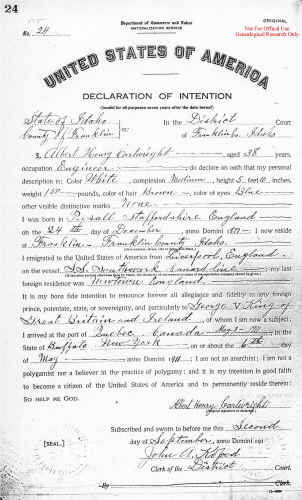 24
ORIGINAL
Not For Official Use
Genealogical Research Only
Department of Commerce and Labor
NATURALIZATION SERVICE
No. 24
UNITED STATES OF AMERICA
DECLARATION OF INTENTION
(Invalid for all purposes seven years after the date hereof)
State of Idaho
In the District Court
County of Franklin ss:
of Franklin Co Idaho
I, Albert Henry Cartwright, aged 38 years,
occupation Engineer, do declare on oath that my personal
description is: Color White, complexion Medium, height 5 feet inches,
weight pounds, color of hair Brown, color of eyes Blue
other visible distinctive marks None
I was born in Staffordshire England
on the 24th day of December, anno Domini; I now reside
at Franklin Franklin County Idaho.
I emigrated to the United States of America from Liverpool, England
on the vessel S.S. Line; my last
foreign residence was England.
It is my bona fide intention to renounce forever all allegiance and fidelity to any foreign
prince, potentate, state, or sovereignty, and particularly to George V King of
Great Britain and Ireland, of whom I am now a subject;
I arrived at the port of Quebec, Canada, in the
State of Buffalo New York, on or about the 6th day
of May, anno Domini 1911; I am not an anarchist; I am not a
polygamist nor a believer in the practice of polygamy; and it is my intention in good faith
to become a citizen of the United States of America and to permanently reside therein:
SO HELP ME GOD.
Albert Henry Cartwright
Subscribed and sworn to before me this Second
[SEAL.]
day of September, anno Domini 191
John A.
Clerk of the District Court.
By, Clerk.